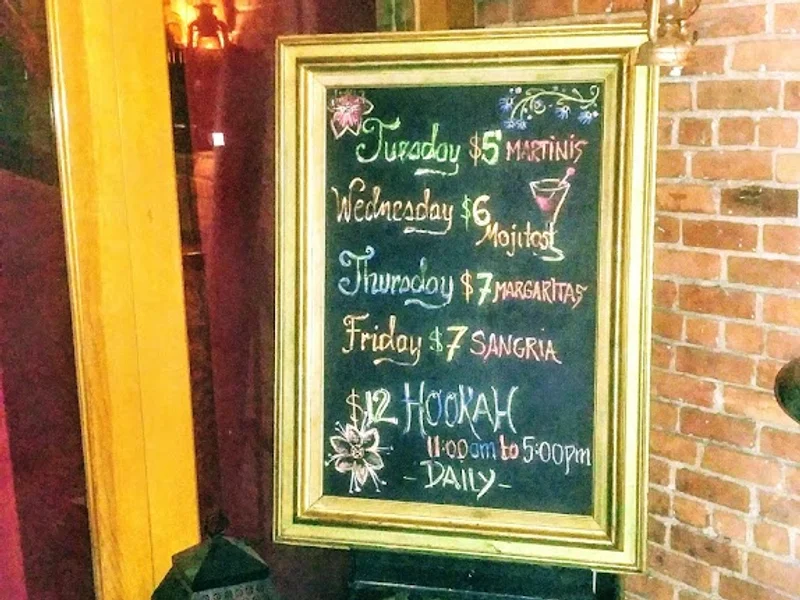 Tuesday $5 MARTINIS
Wednesday $6
Mojitos
Thursday $7 MARGARITAS
Friday $7 SANGRIA
$12 HOOKAH
11:00am to 5:00pm
-DAILY-